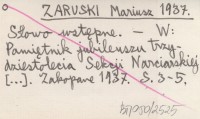 ZARUSKI Mariusz 1937.
Słowo wstępne. – W:
Pamiętnik jubileuszu trzy-
dziestolecia Sekcji Narciarskiej
[...]. Zakopane 1937. S. 3-5.